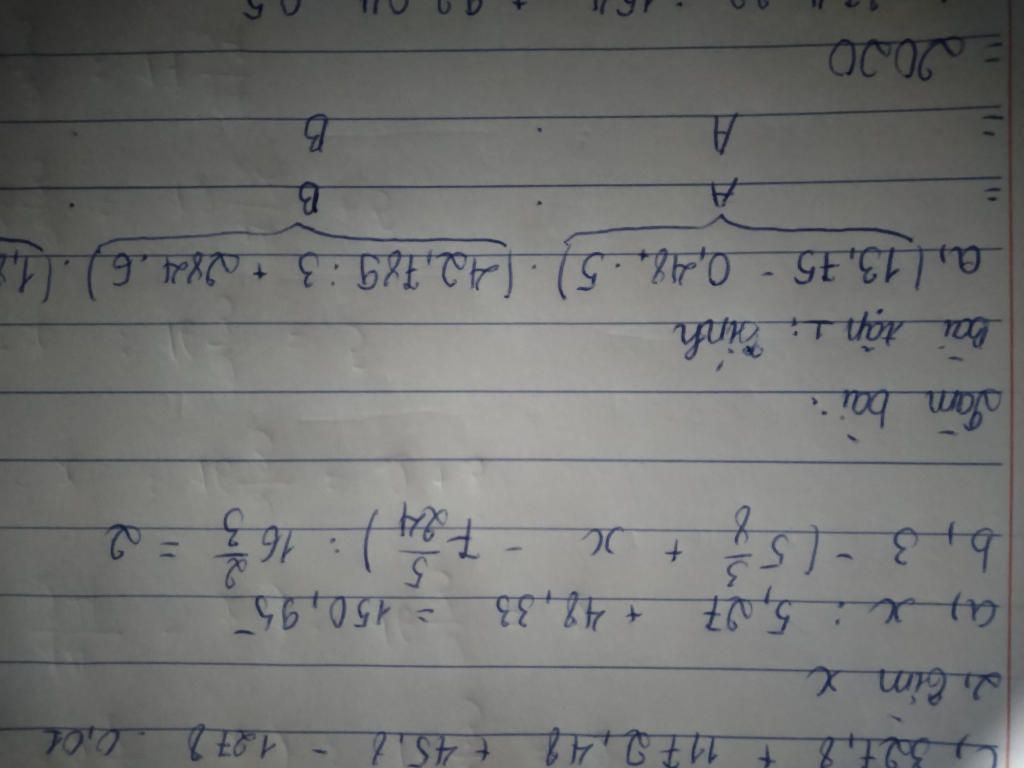 327,8 + 1172,48 + 45,8 - 1278 0,01
2. Tìm x
a, x : 5,27 + 48,33 = 150,95
b, 3 - (5 3/8 + x - 7 5/24) : 16 2/3 = 2
Làm bài:
bài tập 1: tính
a, (13,75 - 0,48 . 5) . (42,789 : 3 + 284 . 6) . (1,8
= A . B .
= A . B .
= 2020